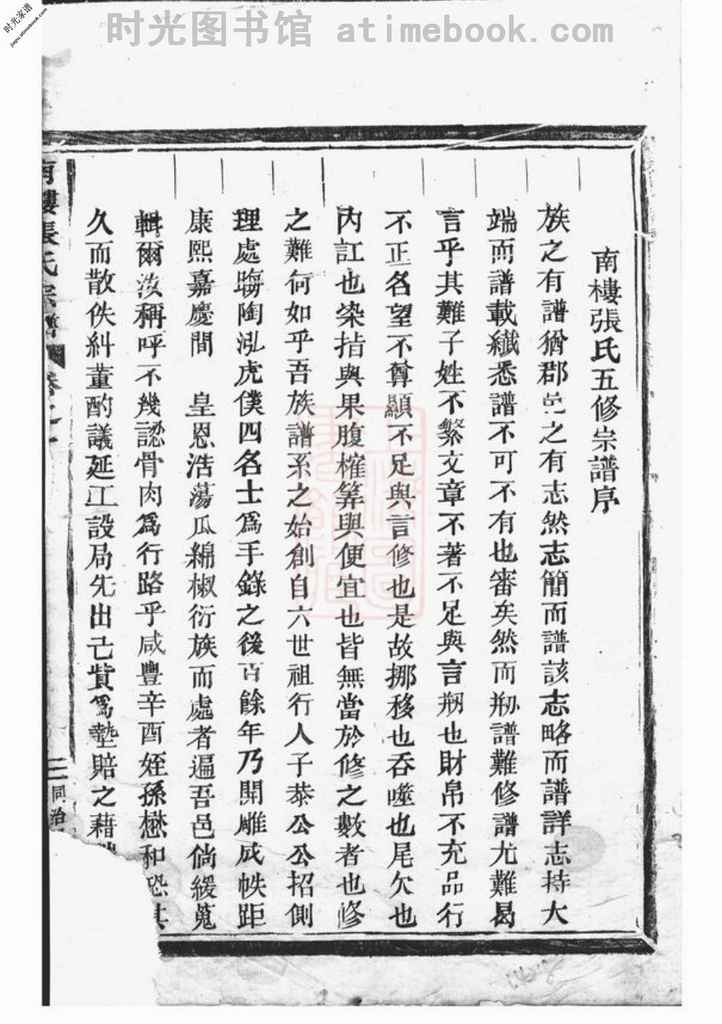 时光图书馆 atimebook.com
时光家谱
南樓張氏五修宗譜序
族之有譜猶郡邑之有志然志簡而譜該志略而譜詳志持大
端而譜載纖悉譜不可不有也審矣然而刱譜難修譜尤難曷
言乎其難子姓不繁文章不著不足與言刱也財帛不充品行
不正名望不尊顯不足與言修也是故挪移也吞噬也尾欠也
內訌也染指與果腹榷筭與便宜也皆無當於修之數者也修
之難何如乎吾族譜系之始創自六世祖行人子恭公公招側
理處鴘陶泓虎僕四名士爲手錄之後百餘年乃開雕成帙距
康熙嘉慶間 皇恩浩蕩瓜綿椒衍族而處者遍吾邑倘緩蒐
輯爾汝稱呼不幾認骨肉爲行路乎咸豐辛酉姪孫懋和恐其
久而散佚糾董酌議延工設局先出己貲爲墊賠之藉
南樓張氏宗譜 卷之一
同治